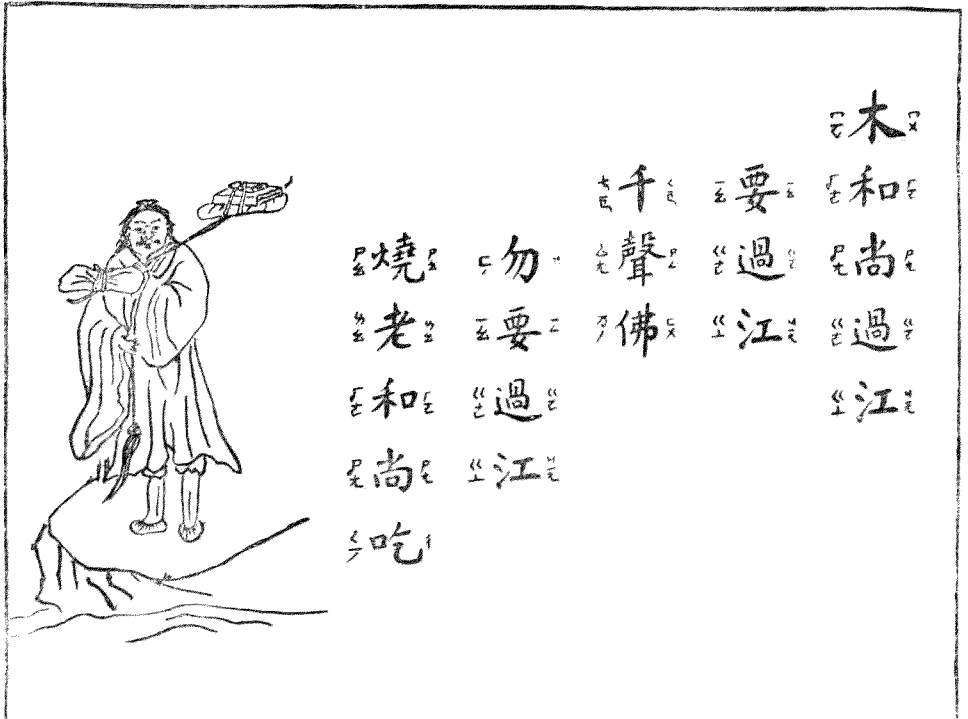 木和尚過江
要過江
千聲佛
勿要過江
燒老和尚吃